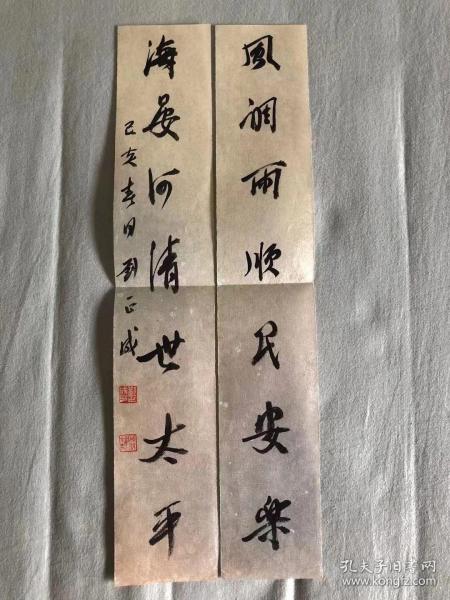 風調雨順民安樂
海晏河清世太平
己亥春日劉正成
孔夫子旧书网
kongfz.com